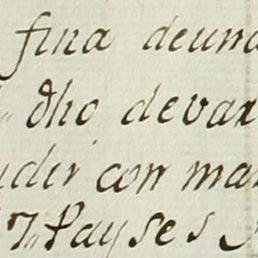 fina deuna
dho devax
uder con ma
7„ Payses